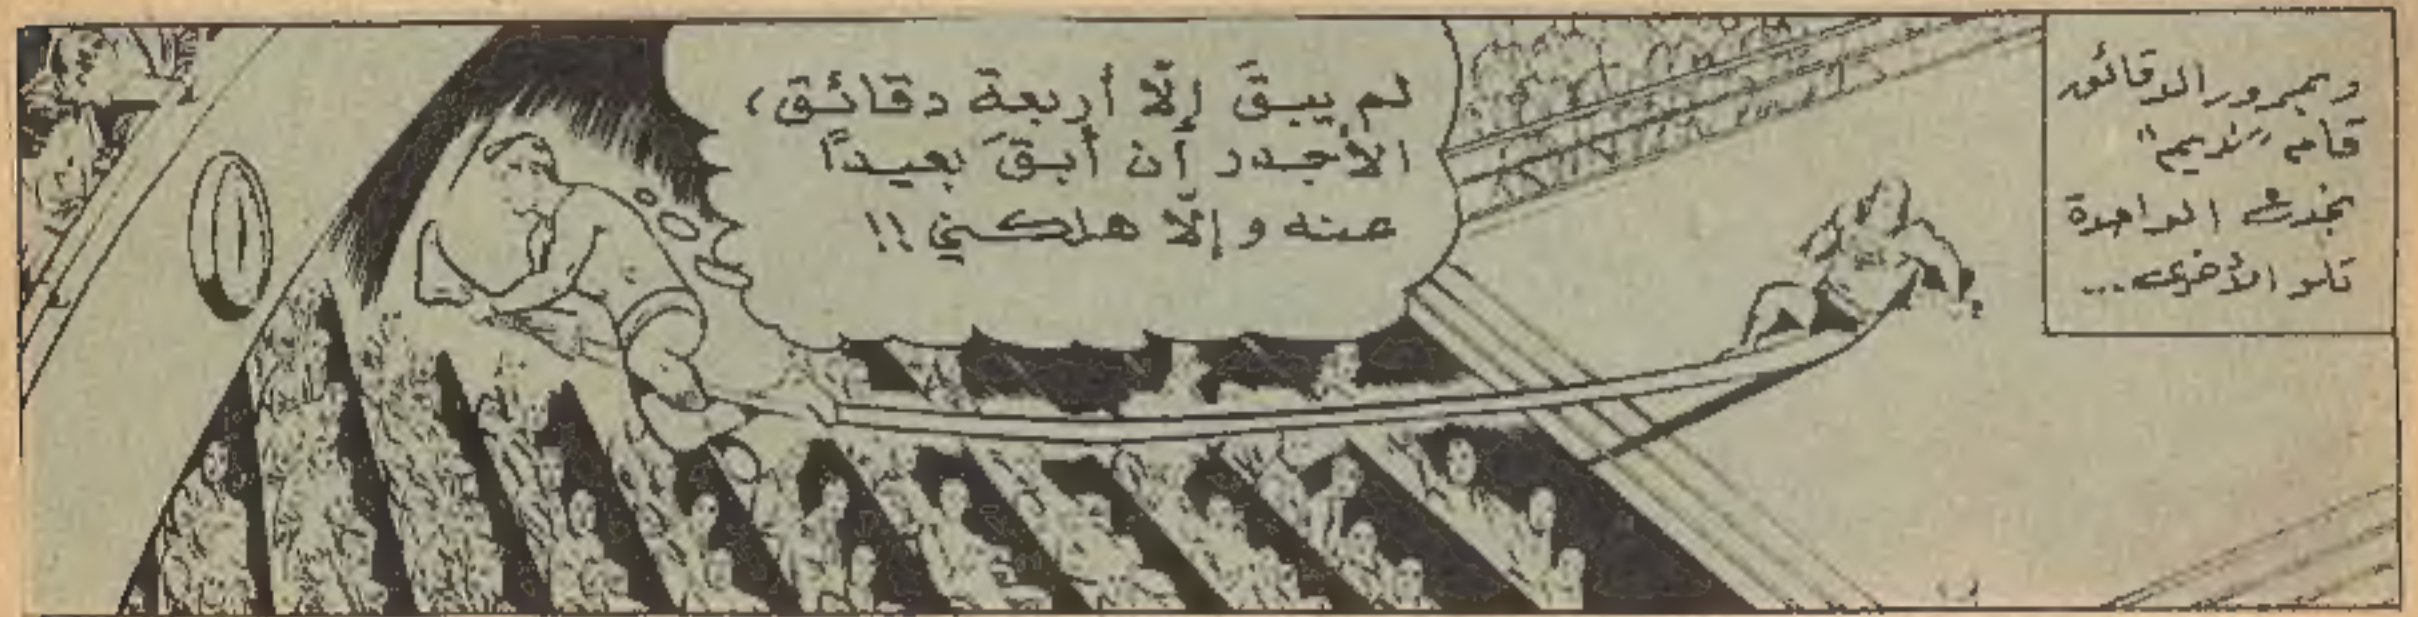 وبمرور الدقائق
قام "نديم"
بخدع الواحدة
تلو الأخرى...
لم يبقَ إلّا أربعة دقائق،
الأجدر أن أبقَ بعيداً
عنه وإلّا هلكني!!